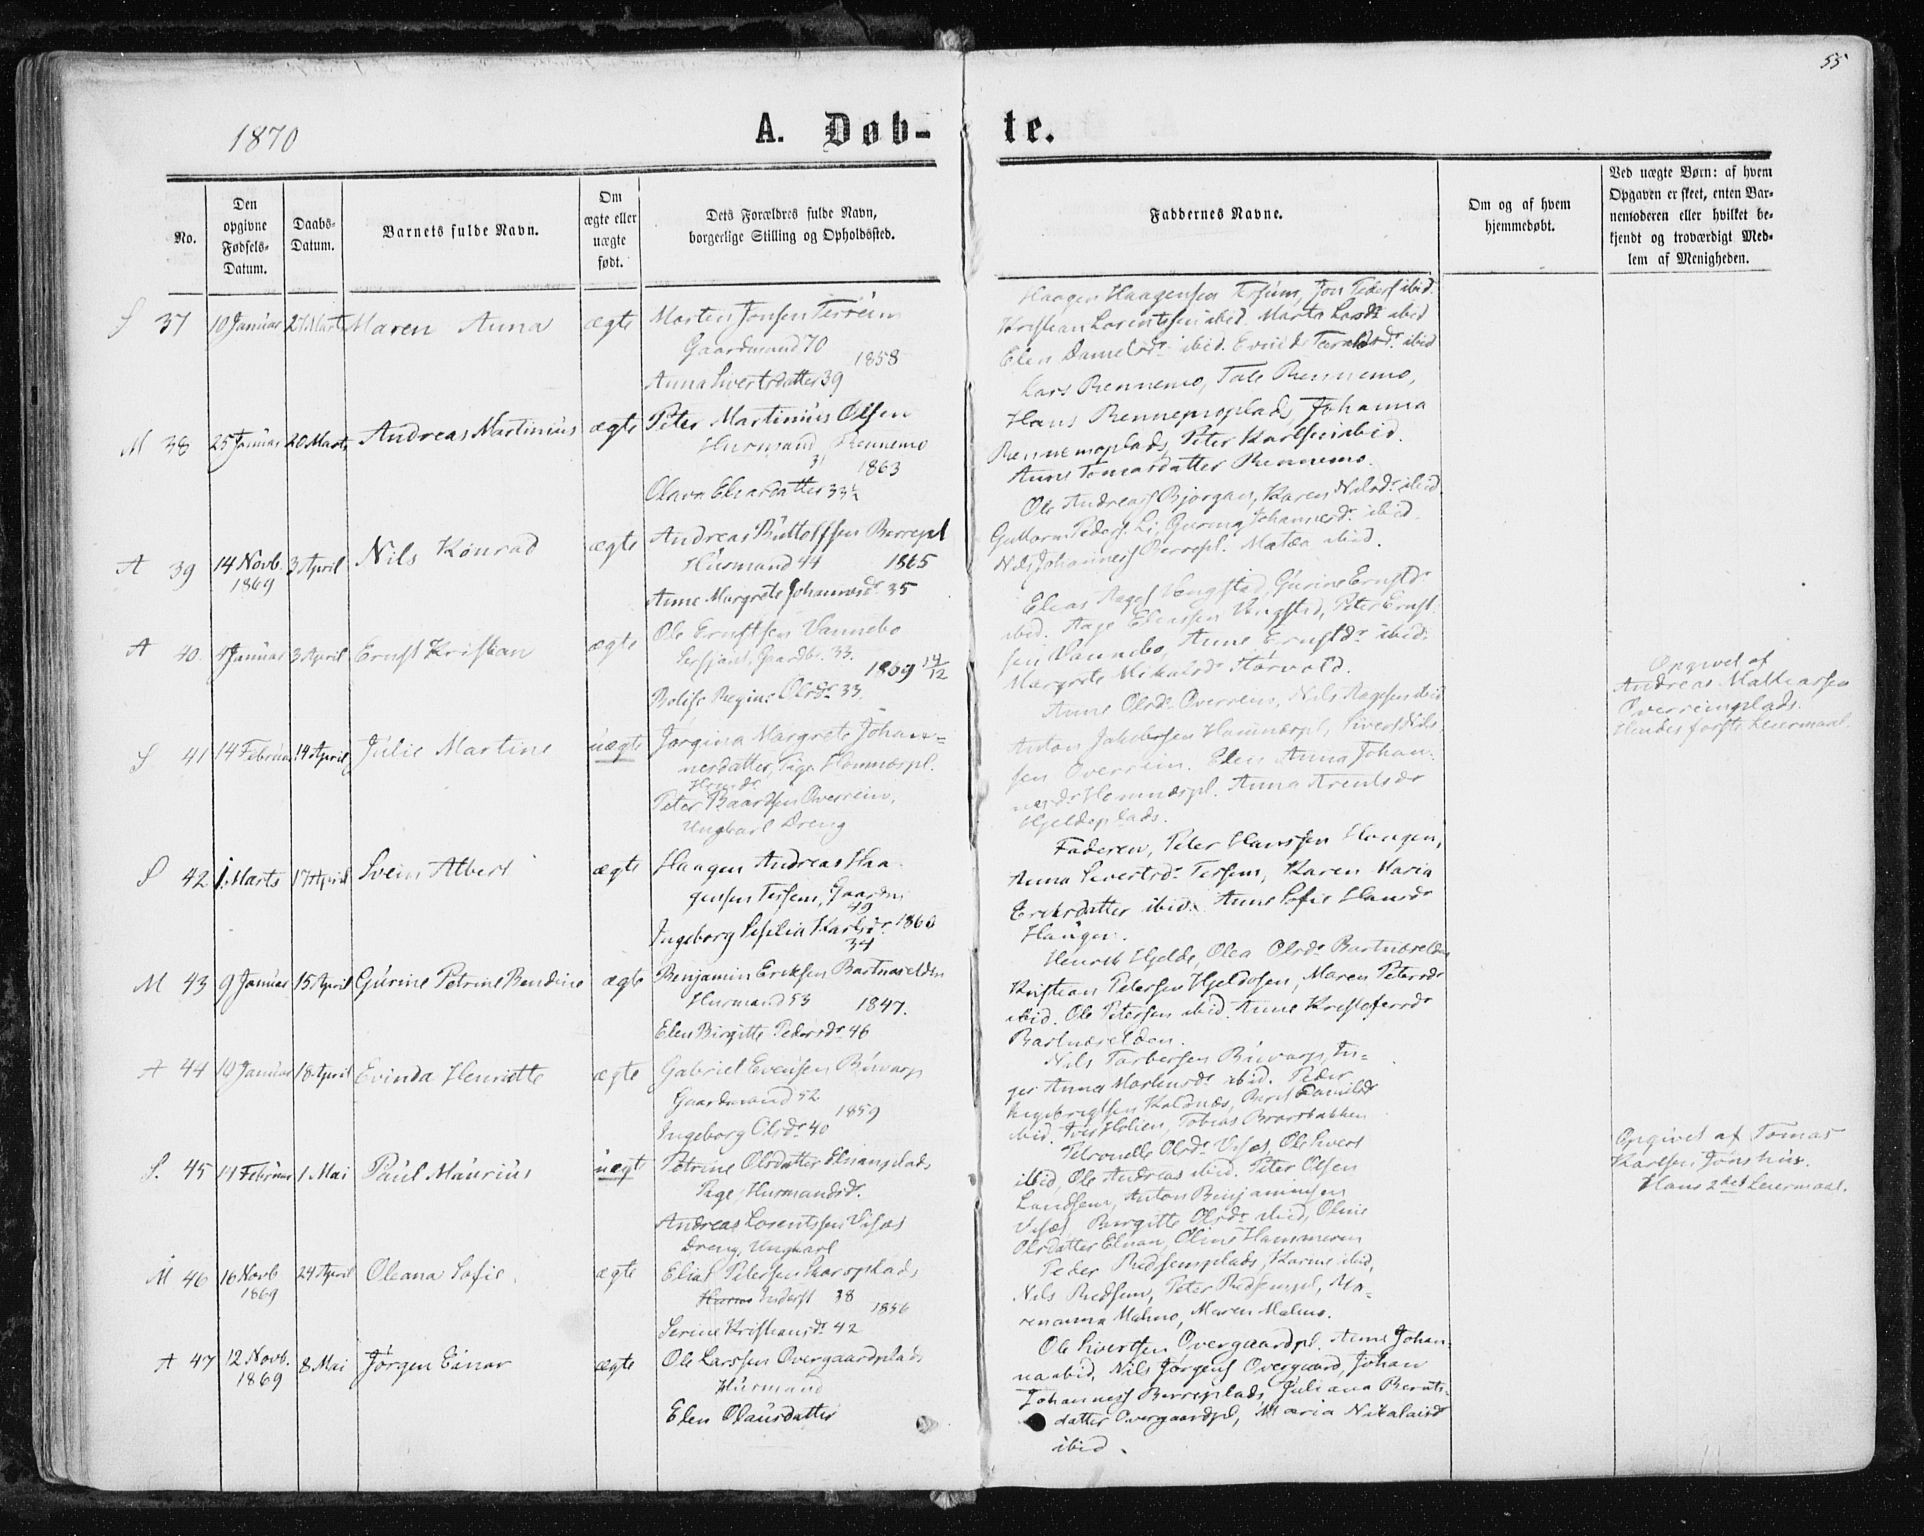 55
1870
A. Døb-te.
No.
Den opgivne Fødsels-Datum.
Daabs-Datum.
Barnets fulde Navn.
Om ægte eller uægte født.
Dets Forældres fulde Navn,
borgerlige Stilling og Opholdssted.
Faddernes Navne.
Om og af hvem
hjemmedøbt.
Ved uægte Børn: af hvem
Opgaven er skeet, enten Bar-
nemoderen eller hvilket be-
kjendt og troværdigt Med-
lem af Menigheden.
S 37 10 Januar 27 Marts Maren Anna ægte
Morten Jonsen
Gaardmand 70
1858
Anna Sivertsdatter 39
Haagen Haagensen Jon Peders ibid.
Kristian Lorentssen ibid. Marta ibid
Elen Danielsdr ibid. ibid
M 38 25 Januar 20 Marts Andreas Martinius ægte
Peter Martinius Olsen
Husmand, Rennemo
31 1863
Olava Eliasdatter 33½
Lars Rennemo, Rennemo,
Hans Rennemoplads, Johanna
Rennemoplads, Peter Karlsen ibid.
Anne Tomasdatter Rennemo.
A 39 14 Novb. 1869 3 April Nils Konrad ægte
Andreas Berrepl
Husmand 44 1865
Anne Margrete Johannesdr 35
Ole Andreas Bjørgan, Karen Nilsdr ibid.
Guttorm Peders. Li, Johannesdr ibid.
Nils Johanness Berrepl. ibid.
A 40. 4 Januar 3 April Ernst Kristian ægte
Ole Ernstsen Vannebo
Sersjant, Gaardbr. 33.
1869 14/12
Regine Olsdr 33.
Elias Aages Vengstad, Gurine Ernstdr
ibid. Aage Eliassen Vengstad, Peter Ernst-
sen Vannebo, Anne Ernstdr ibid.
Margrete Mikalsdr
S 41 14 Februar 14 April Julie Martine uægte
Jørgina Margrete Johan-
nesdatter, Pige
Husmdr
Peter Baardsen Overrein,
Ungkarl Dreng
Anne Olsdr Overrein, Nils Aagesen ibid
Anton Jakobsen Sivert Nils-
sen Overrein. Elen Anna Johan-
nesdr Anna Arentsdr
Hjeldeplads.
Opgivet af
Andreas Mattiassen
Overreinsplads.
Hendes første Leiermaal.
S 42 1. Marts 17 April Svein Albert ægte
Haagen Andreas Haa-
gensen Gaardm
49
Ingeborg Karlsdr 1860
34
Faderen, Peter Hanssen Haugen,
Anna Sivertsdr Karen Maria
Eriksdatter ibid. Anne Sofie Hansdr
Haugen.
M 43 9 Januar 15 April Gurine Petrine Bendine ægte
Benjamin Eriksen Bartnæselden
Husmand 53 1847.
Elen Birgitte Pedersdr 46
Henrik Hjelde, Olea Olsdr Bartnæselden
Kristian Petersen Hjeldosen, Maren Petersdr
ibid. Ole Petersen ibid. Anne Kristofersdr
Bartnæselden.
A 44 10 Januar 18 April Evinda Henriette ægte
Gabriel Evensen
Gaardmand 52
1859
Ingeborg Olsdr 40
Nils Torbersen In-
ger Anna ibid. Peder
Ingebrigtsen Koldnæs, Berit
ibid. Tobias
S. 45 11 Februar 1 Mai Paul Maurius uægt
Petrine Olsdatter Elnanplads
Pige, Husmandsdr.
Andreas Lorentssen
Dreng, Ungkarl
Petronelle Olsdr Ole Sivert
ibid, Ole Andreas ibid. Peter Olsen
Anton Benjaminsen
Birgitte Olsdr ibid, Oline
Olsdatter Elnan, Oline Hammeren
Opgivet af Tomas
Karlsen Jønshus.
Hans 2det Leiermaal.
M 46 16 Novb 1869 24 April Oleana Sofie ægte
Elias Petersen
Husm Inderst 38
1856
Serine Kristiansdr 42
Peder Karine ibid,
Nils Peter Ma-
renanna Malmo, Maren Malmo.
A 47 12 Novb. 1869 8 Mai Jørgen Einar ægte
Ole Larssen Overgaardplads
Husmand
Elen Olausdatter
Ole Sivertsen Overgaardpl. Anne Johan-
na ibid, Nils Jørgens Overgaard, Johan
Johanness Berreplads, Juliana Bernts-
datter Overgaardpl, Maria Nikolaisdr
ibid.